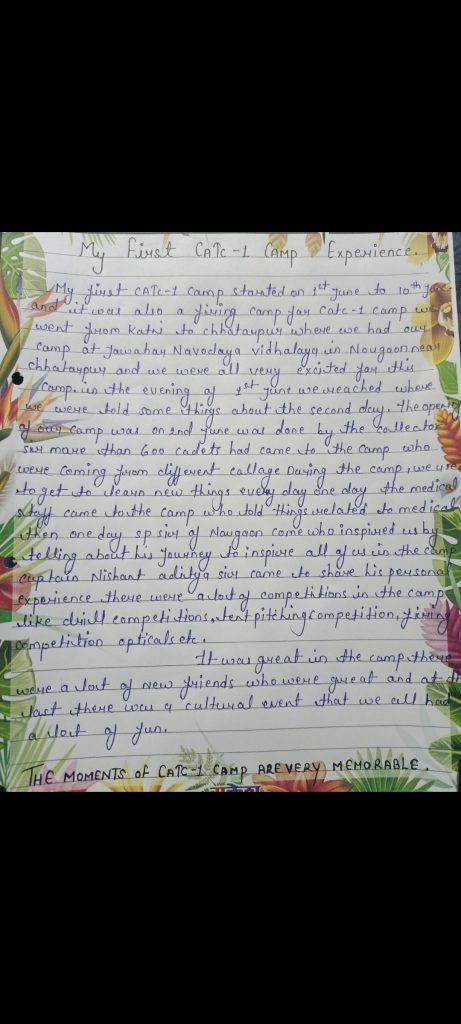 My First CATC-1 CAMP Experience.
My first CATC-1 camp started on 1st June to 10th June
and it was also a firing camp for catc-1 camp we
went from Katni to chhatarpur where we had our
camp at Jawahar Navodaya vidhalaya in Nowgaon near
chhatarpur and we were all very excited for this
camp. in the evening of 1st June we reached where
we were told some things about the second day. The opening
of our camp was on 2nd June was done by the collector
sir more than 600 cadets had came to the camp who
were coming from different collage During the camp, we use
to get to learn new things every day one day the medical
staff came to the camp who told things related to medical
then one day sp sir of Naugaon come who inspired us by
telling about his Journey to inspire all of us in the camp
captain Nishant aditya sir came to share his personal
experience there were a lot of competitions in the camp
like drill competitions, tent pitching competition, firing
competition opticals etc.
It was great in the camp there
were a lort of New friends who were great and at
last there was a cultural event that we all had
a lort of fun.
THE MOMENTS OF CATC-1 CAMP ARE VERY MEMORABLE.